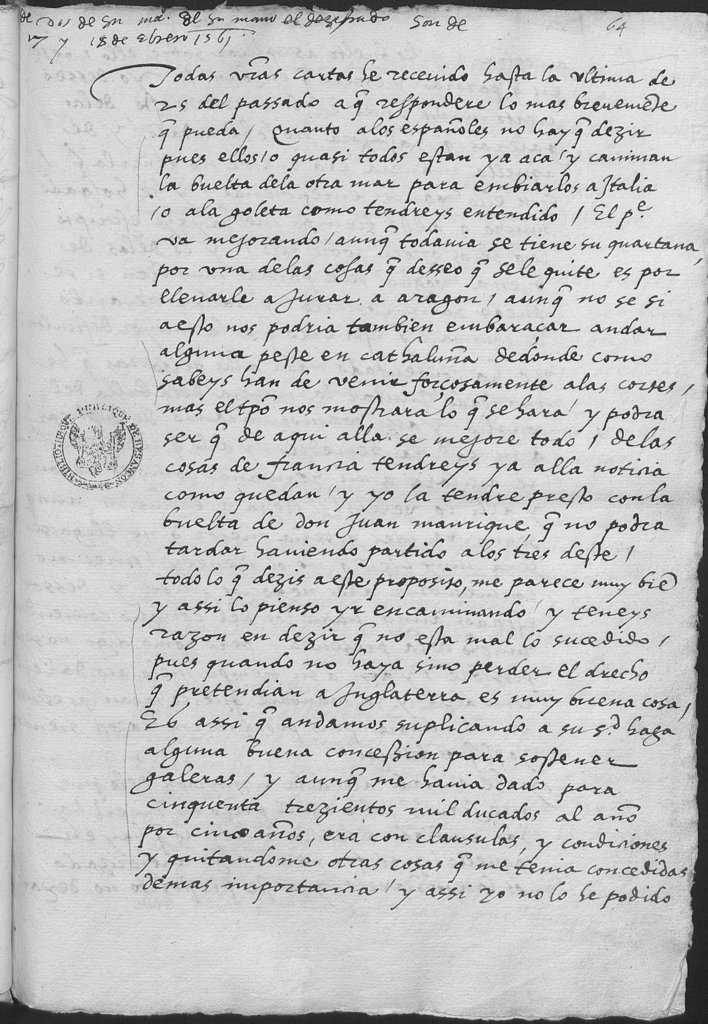 de Dos de Su mad. de Su mano el dezifrado Son de 64
17 y 18 de ebrero 1561.
Todas vr̃as cartas he recevido hasta la ultima de
25 del passado a q̃ respondere lo mas brevemẽte
q̃ pueda / Quanto alos españoles no hay q̃ dezir
pues ellos / o quasi todos estan ya aca / y caminan
la buelta dela otra mar para embiarlos a Italia
/o ala goleta como tendreys entendido / El pe.
va mejorando / aunq̃ todavia se tiene su quartana,
por una delas cosas q̃ desseo q̃ sele quite es por
llevarle a Jurar a aragon / aunq̃ no se si
aesto nos podria tambien embaraçar andar
alguna peste en cathaluña dedonde como
sabeys han de venir forçosamente alas cortes /
mas el tp̃o nos mostrara lo q̃ se hara / y podra
ser q̃ de aqui alla se mejore todo / delas
cosas de francia tendreys ya alla noticia
como quedan / y yo la tendre presto con la
buelta de don Juan manrique, q̃ no podra
tardar haviendo partido alos tres deste /
todo lo q̃ dezis aeste proposito, me parece muy biẽ
y assi lo pienso yr encaminando / y teneys
razon en dezir q̃ no esta mal lo sucedido /
pues quando no haya sino perder el drecho
q̃ pretendian a Inglaterra, es muy buena cosa /
Es assi q̃ andamos suplicando a su sd. haga
alguna buena concession para sostener
galeras / y aunq̃ me havia dado para
cinquenta trezientos mil ducados al año
por cinco años, era con clausulas, y condiciones
y quitandome otras cosas q̃ me tenia concedidas
demas importancia / y assi yo no lo he podido
BIBLIOTHEQUE PUBLIQUE DE BESANÇON